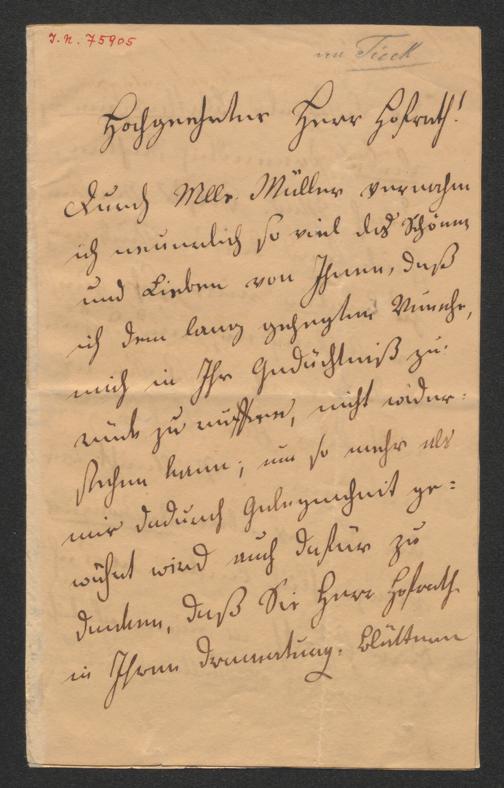 J.N. 75905
an Tieck
Hochgeehrter Herr Hofrath!
Durch Mlle. Müller vernahm
ich neuerdlich so viel des Schönen
und Lieben von Ihnen, daß
ich dem lang gehegten Wunsche,
mich in Ihr Gedächtniß zu-
rück zu rufen, nicht wider-
stehen kann; um so mehr als
mir dadurch Gelegenheit ge=
währt wird auch dafür zu
danken, daß Sie Herr Hofrath
in Ihren dramaturg. Blättern